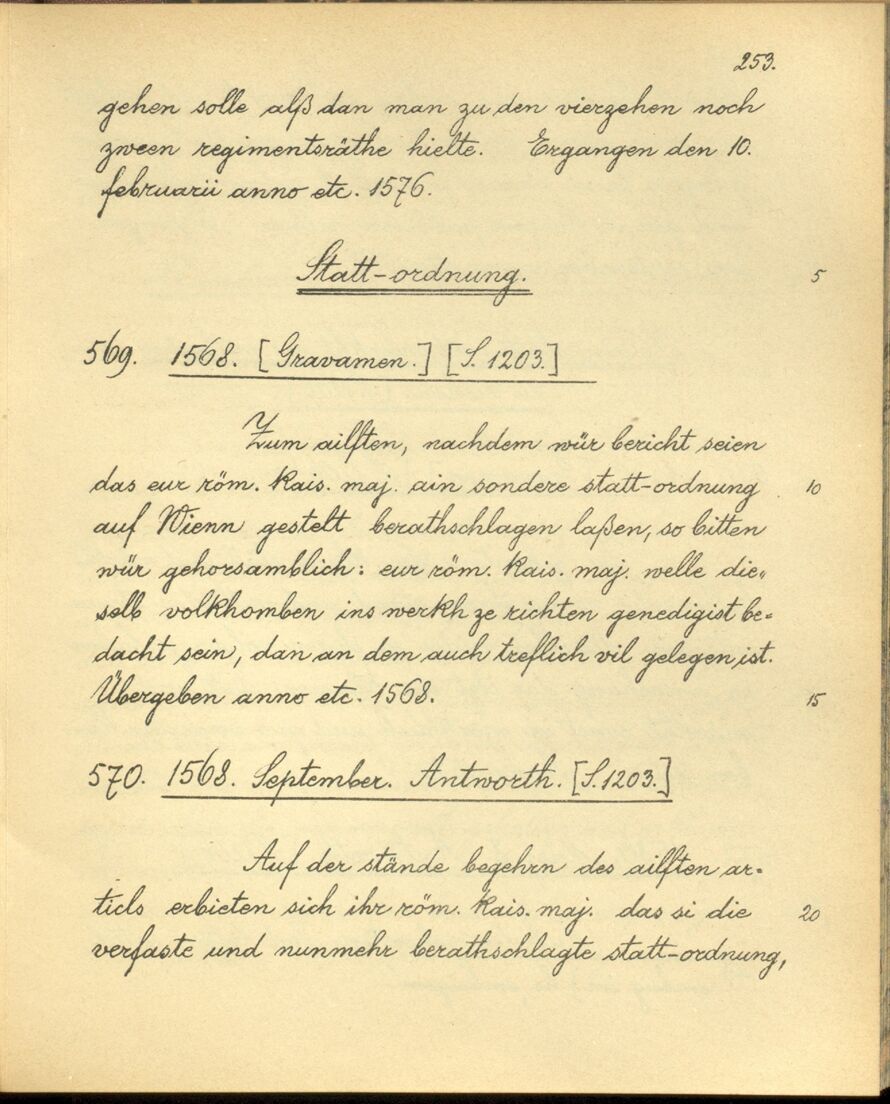 253.
gehen solle alß dan man zu den vierzehen noch
zween regimentsräthe hielte. Ergangen den 10.
februarii anno etc. 1576.
Statt-ordnung.
5
569. 1568. [Gravamen.] [S. 1203.]
Zum ailften, nachdem wür bericht seien
das eur röm. Kais. maj. ain sondere statt-ordnung
10
auf Wienn gestelt berathschlagen laßen, so bitten
wür gehorsamblich: eur röm. Kais. maj. welle die„
selb volkhomben ins werkh ze richten genedigist be=
dacht sein, dan an dem auch treflich vil gelegen ist.
Übergeben anno etc. 1568.
15
570. 1568. September. Antworth. [S. 1203.]
Auf der stände begehrn des ailften ar=
ticls erbieten sich ihr röm. Kais. maj. das si die
20
verfaste und nunmehr berathschlagte statt-ordnung,